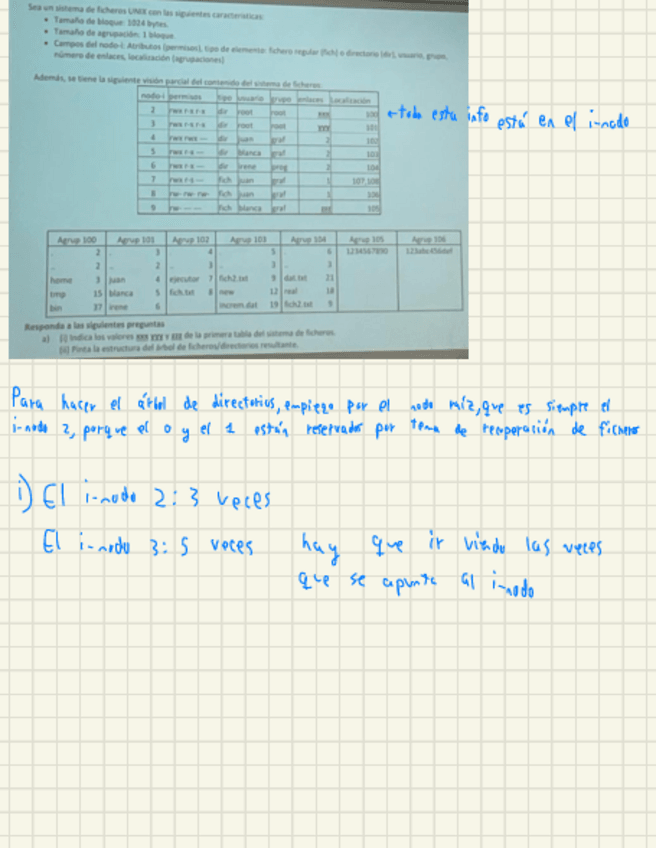 Sea un sistema de ficheros UNIX con las siguientes características:
• Tamaño de bloque: 1024 bytes.
• Tamaño de agrupación: 1 bloque.
• Campos del nodo-i: Atributos (permisos), tipo de elemento: fichero regular (fich) o directorio (dir), usuario, grupo,
número de enlaces, localización (agrupaciones)
Además, se tiene la siguiente visión parcial del contenido del sistema de ficheros:
nodo-i permisos tipo usuario grupo enlaces Localización
2 dir root root xxx 100
3 dir root root yyy 101
4 dir juan graf 2 102
5 dir blanca graf 2 103
6 dir irene prog 2 104
7 fich juan graf 1 107,108
8 rw- rw- rw- fich juan graf 1 106
9 fich blanca graf 105
←toda esta info está en el i-nodo
Agrup 100 Agrup 101 Agrup 102 Agrup 103 Agrup 104 Agrup 105 Agrup 106
. 2 . 3 . 4 . 5 . 6 1234567890
.. 2 .. 2 .. 3 .. 3 .. 3
home 3 juan 4 ejecutar 7 fich2.txt 9 dat.txt 21
tmp 15 blanca 5 fich.txt 8 new 12 real 18
bin 37 irene 6 increm.dat 19 fich2.txt 9
Responda a las siguientes preguntas
a) (i) Indica los valores xxx yyy y zzz de la primera tabla del sistema de ficheros.
(ii) Pinta la estructura del árbol de ficheros/directorios resultante.
Para hacer el árbol de directorios, empiezo por el nodo raíz, que es siempre el
i-nodo 2, porque el 0 y el 1 están reservados por tema de recuperación de ficheros
i) El i-nodo 2: 3 veces
El i-nodo 3: 5 veces hay que ir viendo las veces
que se apunta al i-nodo